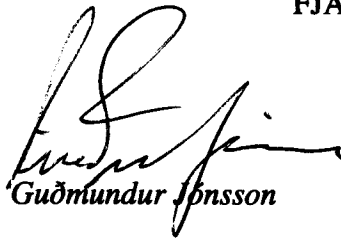 FJÁ
Guðmundur Jónsson